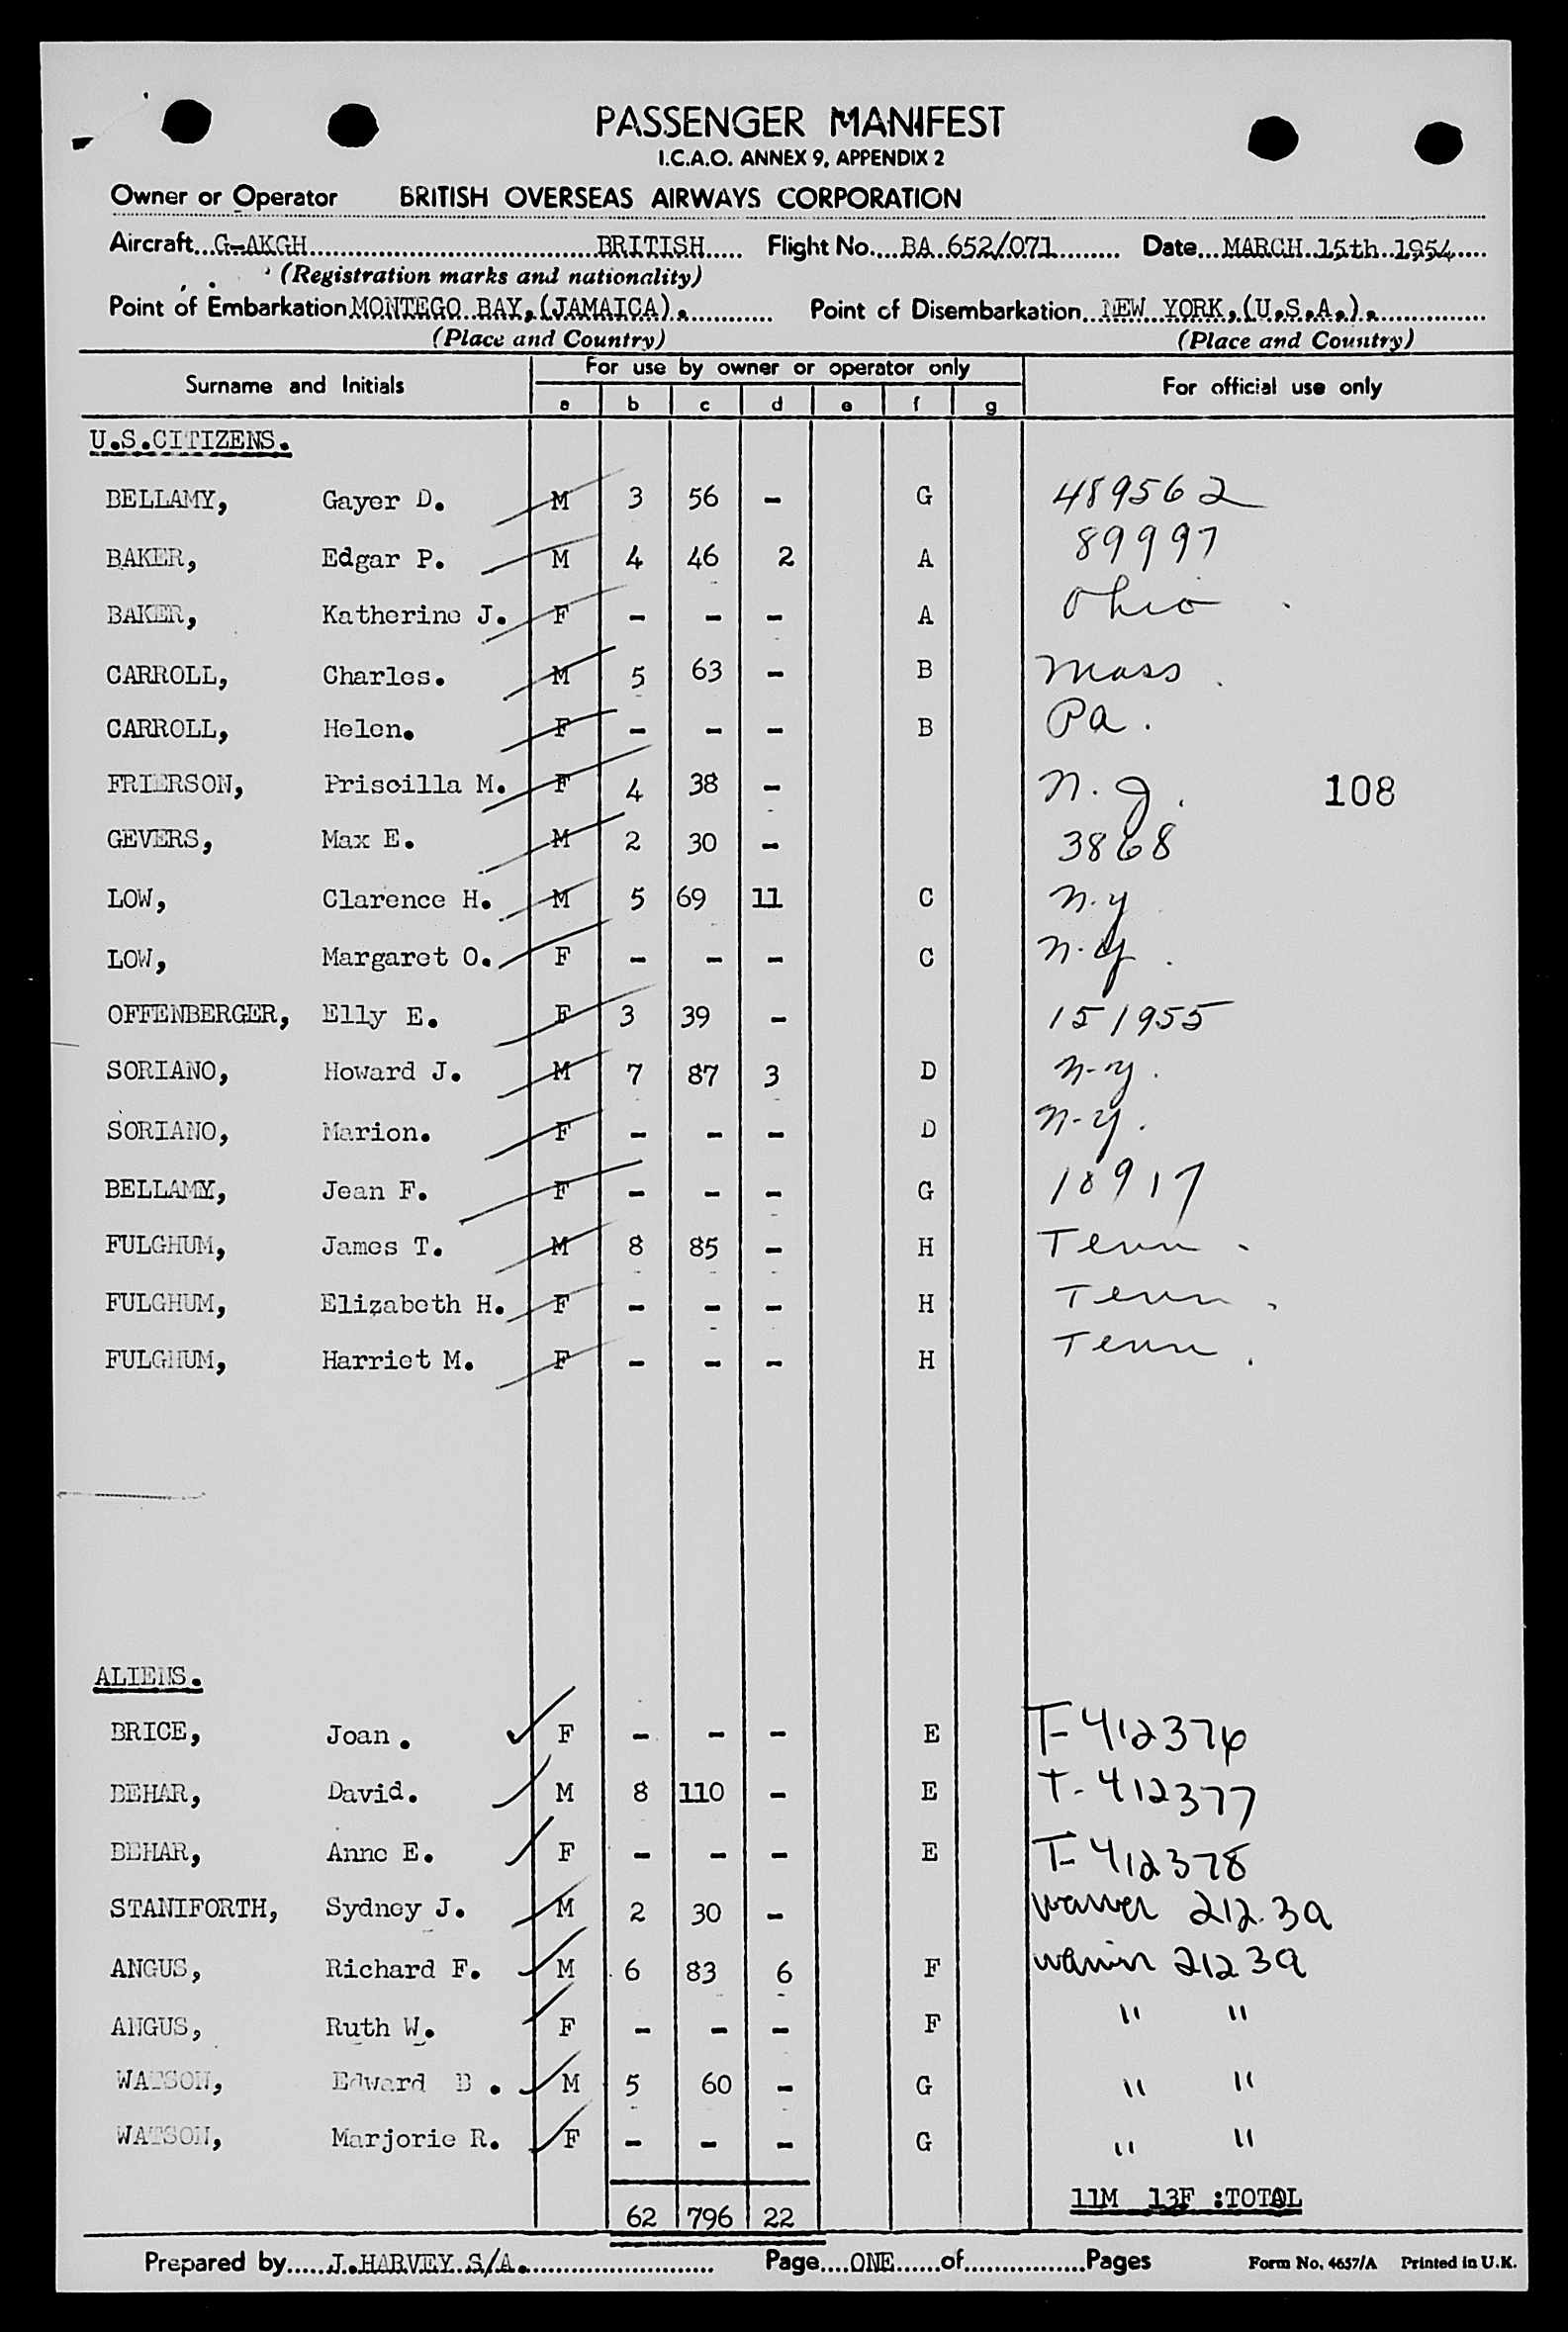 PASSENGER MANIFEST
I.C.A.O. ANNEX 9, APPENDIX 2
Owner or Operator BRITISH OVERSEAS AIRWAYS CORPORATION
Aircraft...G-AKGH...BRITISH... Flight No....BA 652/071... Date...MARCH 15th 1954...
(Registration marks and nationality)
Point of Embarkation MONTEGO BAY, (JAMAICA). Point of Disembarkation...NEW YORK, (U.S.A.).
(Place and Country) (Place and Country)
Surname and Initials For use by owner or operator only For official use only
a b c d e f g
U.S.CITIZENS.
BELLAMY, Gayer D. M 3 56 - G 489562
BAKER, Edgar P. M 4 46 2 A 89997
BAKER, Katherine J. F - - - A Ohio
CARROLL, Charles. M 5 63 - B Mass.
CARROLL, Helen. F - - - B Pa.
FRIERSON, Priscilla M. F 4 38 - N.J. 108
GEVERS, Max E. M 2 30 - 3868
LOW, Clarence H. M 5 69 11 C N.Y
LOW, Margaret O. F - - - C N.Y.
OFFENBERGER, Elly E. F 3 39 - 151955
SORIANO, Howard J. M 7 87 3 D N-Y.
SORIANO, Marion. F - - - D N-Y.
BELLAMY, Jean F. F - - - G 10917
FULGHUM, James T. M 8 85 - H Tenn.
FULGHUM, Elizabeth H. F - - - H Tenn.
FULGHUM, Harriet M. F - - - H Tenn.
ALIENS.
BRICE, Joan. F - - - E T-412376
BEHAR, David. M 8 110 - E T-412377
BEHAR, Anne E. F - - - E T-412378
STANIFORTH, Sydney J. M 2 30 - waiver 212.3a
ANGUS, Richard F. M 6 83 6 F waiver 212 3a
ANGUS, Ruth W. F - - - F " "
WATSON, Edward B. M 5 60 - G " "
WATSON, Marjorie R. F - - - G " "
11M 13F :TOTAL
62 796 22
Prepared by...J.HARVEY S/A... Page...ONE...of...Pages Form No. 4657/A Printed in U.K.